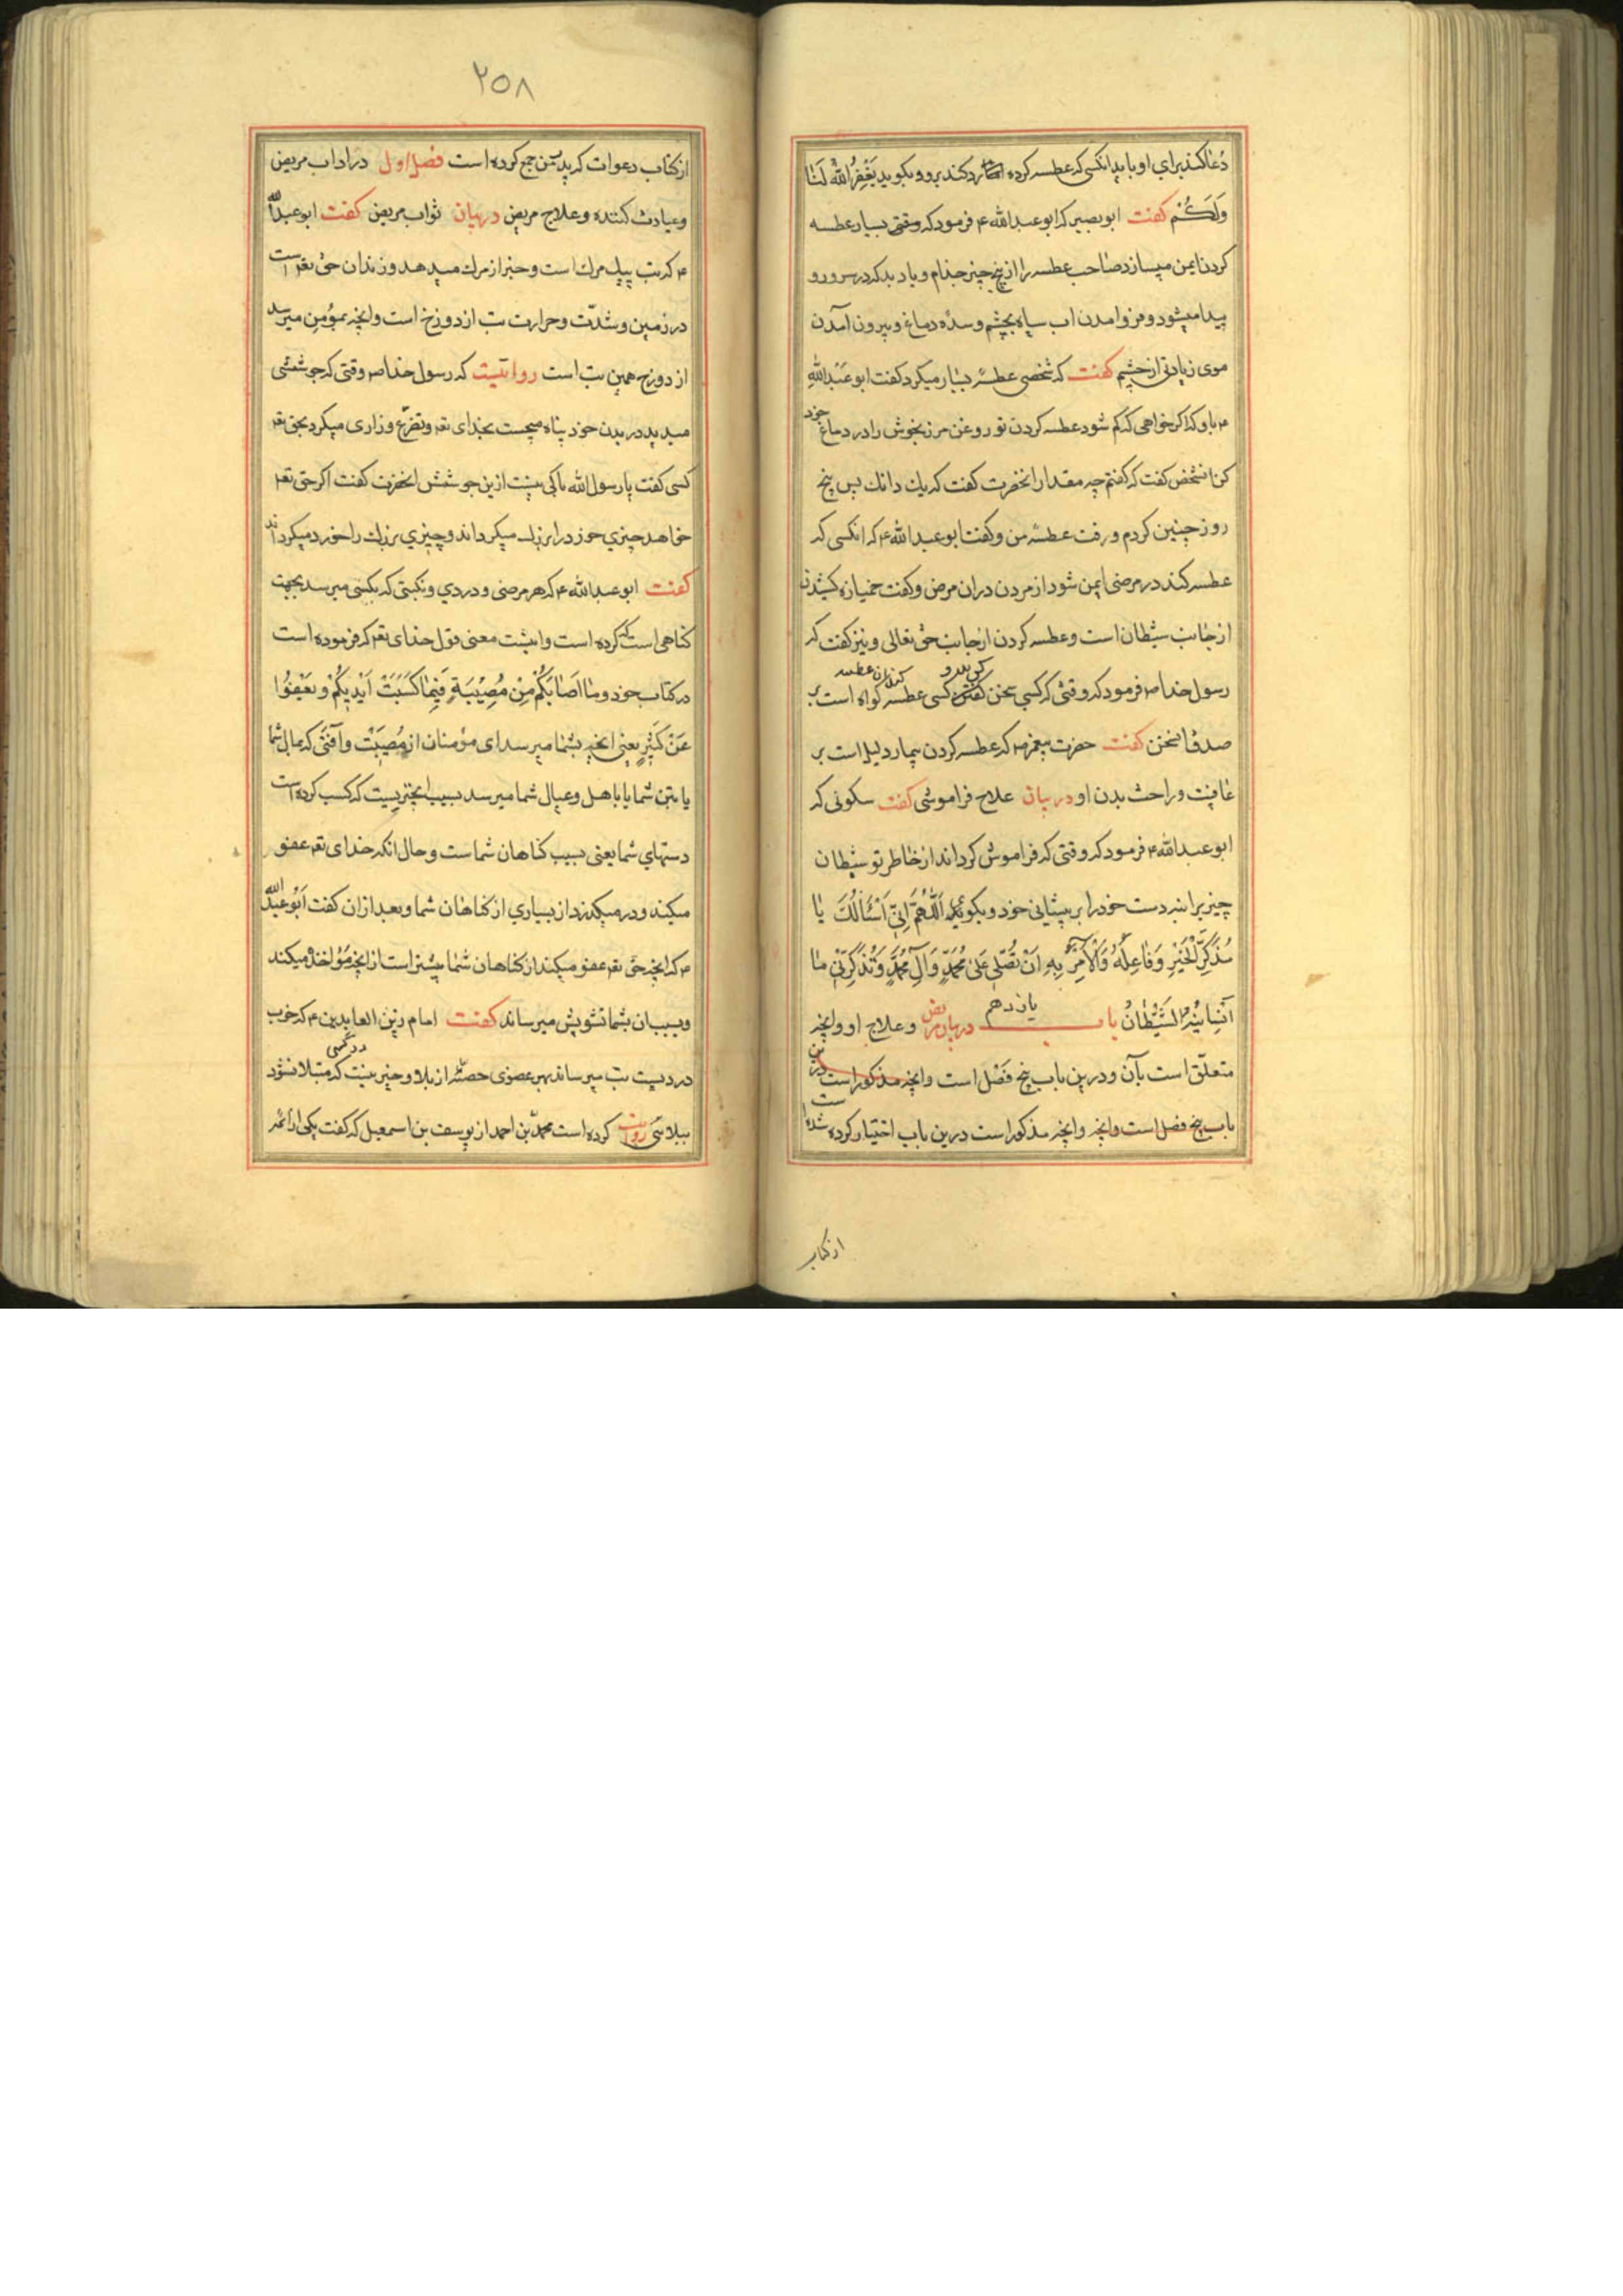 دعا کند برای او باید انکسی که عطسه کرده رد کند برو و بکوید یَغْفِرُ اللّٰهُ لَنَا
وَلَکُمْ کفت ابوبصیر که ابوعبدالله ۴ فرمود که وقتی بسیار عطسه
کردن ایمن میسازد صاحب عطسه را از پنج چیز جذام و باد بد که در سر و رو
پیدا میشود و فرو امدن اب سیاه بچشم و سدّه دماغ و بیرون آمدن
موی زیادتی از چشم کفت که شخصی عطسهٔ بسیار میکرد کفت ابوعَبْداللّٰهِ
۴ باو که اکر خواهی که کم شود عطسه کردن تو روغن مرزنجوش را در دماغ خود
کن انشخص کفت که کفتم چه مقدار انحضرت کفت که یك دانك پس پنج
روز چنین کردم و رفت عطسهٔ من و کفت ابوعبدالله ۴ که انکسی که
عطسه کند در مرضی ایمن شود از مردن در ان مرض و کفت خمیازه کشیدن
از جانب شیطان است و عطسه کردن از جانب حق تعالی و نیز کفت که
رسول خدا ص فرمود که وقتی که کسی سخن کند کسی عطسه کواه است بر
صدق انسخن کفت حضرت پیغمبر ص که عطسه کردن بیمار دلیل است بر
عافیت و راحت بدن او در بیان علاج فراموشی کفت سکونی که
ابوعبدالله ۴ فرمود که وقتی که فراموش کرداند از خاطر تو شیطان
چیزیرا بنه دست خود را بر پیشانی خود و بکوی که اَللّٰهُمَّ اِنّیٖ اَسْئَالُكَ یٰا
مُذَکِّرَ الْخَیْرِ وَفٰاعِلَهُ وَالْآمِرَ بِهِ اَنْ تُصَلِّیَ عَلیٰ مُحَمَّدٍ وَآلِ مُحَمَّدٍ وَتُذَکِّرَنٖی مٰا
اَنْسٰانٖیهُ الشَّیْطٰانُ باب یازدهم در بیان مریض و علاج او و انچه
متعلّق است بآن و درین باب پنج فَصْل است و انچه مذکور است درین
باب پنج فصل است و انچه و انچه مذکور است درین باب اختیار کرده شده است
از کتاب
۲۵۸
از کتاب دعوات که پدر من جمع کرده است فصل اول در اداب مریض
و عیادت کننده و علاج مریض در بیان ثواب مریض کفت ابوعبدالله
۴ که تب پیك مرك است و خبر از مرك میدهد و زندان حق تعم است
در زمین و شدّت و حرارت تب از دوزخ است و انچه بمؤمن میرسد
از دوزخ همین تب است روایتیست که رسول خدا ص وقتی که جوششی
میدید در بدن خود پناه میجست بخدای تعم و تضرّع و زاری میکرد بحق تعم
کسی کفت یا رسول الله باکی نیست ازین جوشش انحضرت کفت اکر حق تعم
خواهد چیزی خورد را بزرك میکرداند و چیزی بزرك را خورد میکرداند
کفت ابوعبدالله ۴ که هر مرضی و دردی و نکبتی که بکسی میرسد بجهت
کناهی است که کرده است و اینست معنی قول خدای تعم که فرموده است
در کتاب خود وما اَصٰابَکُمْ مِنْ مُصٖیْبَةٍ فَبِمٰا کَسَبَتْ اَیْدٖیکُمْ وَیَعْفُوْا
عَنْ کَثٖیرٍ یعنی انچه بشما میرسد ای مؤمنان از مُصیبَتْ و آفتی که بمال شما
یا بتن شما یا باهل و عیال شما میرسد بسبب انچیزیست که کسب کرده است
دستهای شما یعنی بسبب کناهان شماست و حال انکه خدای تعم عفو
میکند و در میکذرد از بسیاری از کناهان شما و بعد از ان کفت اَبُو عَبْدِ اللّٰه
۴ که انچه حق تعم عفو میکند از کناهان شما بیشتر است از انچه مَؤاخذه میکند
و بسبب ان بشما تشویش میرساند کفت امام زین العابدین ۴ که خوب
دردیست تب میرساند بهر عضوی حصّهٔ از بلا و خیر نیست در کسی که مبتلا نشود
ببلائی روایت کرده است محمّد بن احمد از یوسف بن اسمعیل که کفت یکی از ائمه